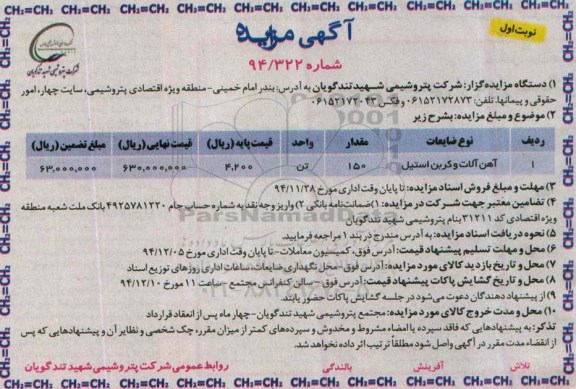 نوبت اول
آگهی مزایده
شماره ۹۴/۳۲۲
شرکت پتروشیمی شهید تندگویان
۱) دستگاه مزایده‌گزار: شرکت پتروشیمی شهید تندگویان به آدرس: بندر امام خمینی - منطقه ویژه اقتصادی پتروشیمی، سایت چهار، امور
حقوقی و پیمانها. تلفن: ۰۶۱۵۲۱۷۲۸۷۳ و فکس ۰۶۱۵۲۱۷۲۰۴۳
۲) موضوع و مبلغ مزایده: بشرح زیر
ردیف نوع ضایعات مقدار واحد قیمت پایه (ریال) قیمت نهایی (ریال) مبلغ تضمین (ریال)
۱ آهن آلات و کربن استیل ۱۵۰ تن ۴,۲۰۰ ۶۳۰,۰۰۰,۰۰۰ ۶۳,۰۰۰,۰۰۰
۳) مهلت و مبلغ فروش اسناد مزایده: تا پایان وقت اداری مورخ ۹۴/۱۱/۲۸
۴) تضامین معتبر جهت شرکت در مزایده: ۱) ضمانت‌نامه بانکی ۲) واریز وجه نقد به شماره حساب جام ۴۹۲۵۷۸۱۲۲۰ بانک ملت شعبه منطقه
ویژه اقتصادی کد ۳۱۲۱۱ بنام پتروشیمی شهید تندگویان
۵) نحوه دریافت اسناد مزایده: به آدرس مندرج در بند ۱ مراجعه فرمایید.
۶) محل و مهلت تسلیم پیشنهاد قیمت: آدرس فوق، کمیسیون معاملات - تا پایان وقت اداری مورخ ۹۴/۱۲/۰۵
۷) محل و تاریخ بازدید کالای مورد مزایده: آدرس فوق - محل نگهداری ضایعات، ساعات اداری روزهای توزیع اسناد
۸) محل و تاریخ گشایش پاکات پیشنهاد قیمت: آدرس فوق - سالن کنفرانس مجتمع - ساعت ۱۱ مورخ ۹۴/۱۲/۱۰
۹) از پیشنهاد دهندگان دعوت می‌شود در جلسه گشایش پاکات حضور یابند.
۱۰) محل و مدت خروج کالای مورد مزایده: مجتمع پتروشیمی شهید تندگویان - چهار ماه پس از انعقاد قرارداد
تذکر: به پیشنهادهایی که فاقد سپرده یا امضاء مشروط و مخدوش و سپرده‌های کمتر از میزان مقرر، چک شخصی و نظایر آن و پیشنهادهایی که پس
از انقضاء مدت مقرر در آگهی واصل شود مطلقاً ترتیب اثر داده نخواهد شد.
تلاش آفرینش بالندگی روابط عمومی شرکت پتروشیمی شهید تندگویان